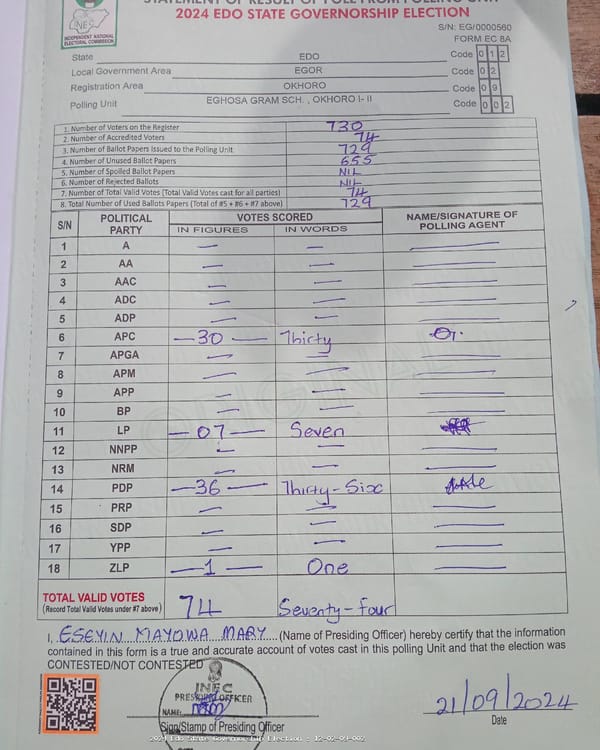 STATEMENT OF RESULT OF POLL FROM POLLING UNIT
2024 EDO STATE GOVERNORSHIP ELECTION
INEC
INDEPENDENT NATIONAL ELECTORAL COMMISSION
S/N: EG/0000560
FORM EC 8A
State EDO Code 0 1 2
Local Government Area EGOR Code 0 2
Registration Area OKHORO Code 0 9
Polling Unit EGHOSA GRAM SCH. , OKHORO I- II Code 0 0 2
1. Number of Voters on the Register 730
2. Number of Accredited Voters 74
3. Number of Ballot Papers Issued to the Polling Unit 729
4. Number of Unused Ballot Papers 655
5. Number of Spoiled Ballot Papers NIL
6. Number of Rejected Ballots NIL
7. Number of Total Valid Votes (Total Valid Votes cast for all parties) 74
8. Total Number of Used Ballots Papers (Total of #5 + #6 + #7 above) 729
S/N POLITICAL PARTY VOTES SCORED NAME/SIGNATURE OF POLLING AGENT
IN FIGURES IN WORDS
1 A — —
2 AA — —
3 AAC — —
4 ADC — —
5 ADP — —
6 APC —30— Thirty
7 APGA — —
8 APM — —
9 APP — —
10 BP — —
11 LP —07— Seven
12 NNPP — —
13 NRM — —
14 PDP —36— Thirty-Six
15 PRP — —
16 SDP — —
17 YPP — —
18 ZLP —1— One
TOTAL VALID VOTES 74 Seventy-four
(Record Total Valid Votes under #7 above)
I, ESEYIN MAYOWA MARY (Name of Presiding Officer) hereby certify that the information
contained in this form is a true and accurate account of votes cast in this polling Unit and that the election was
CONTESTED/NOT CONTESTED
INEC
PRESIDING OFFICER
NAME:
Sign/Stamp of Presiding Officer
21/09/2024
Date
2024 Edo State Governorship Election - 12-02-09-002